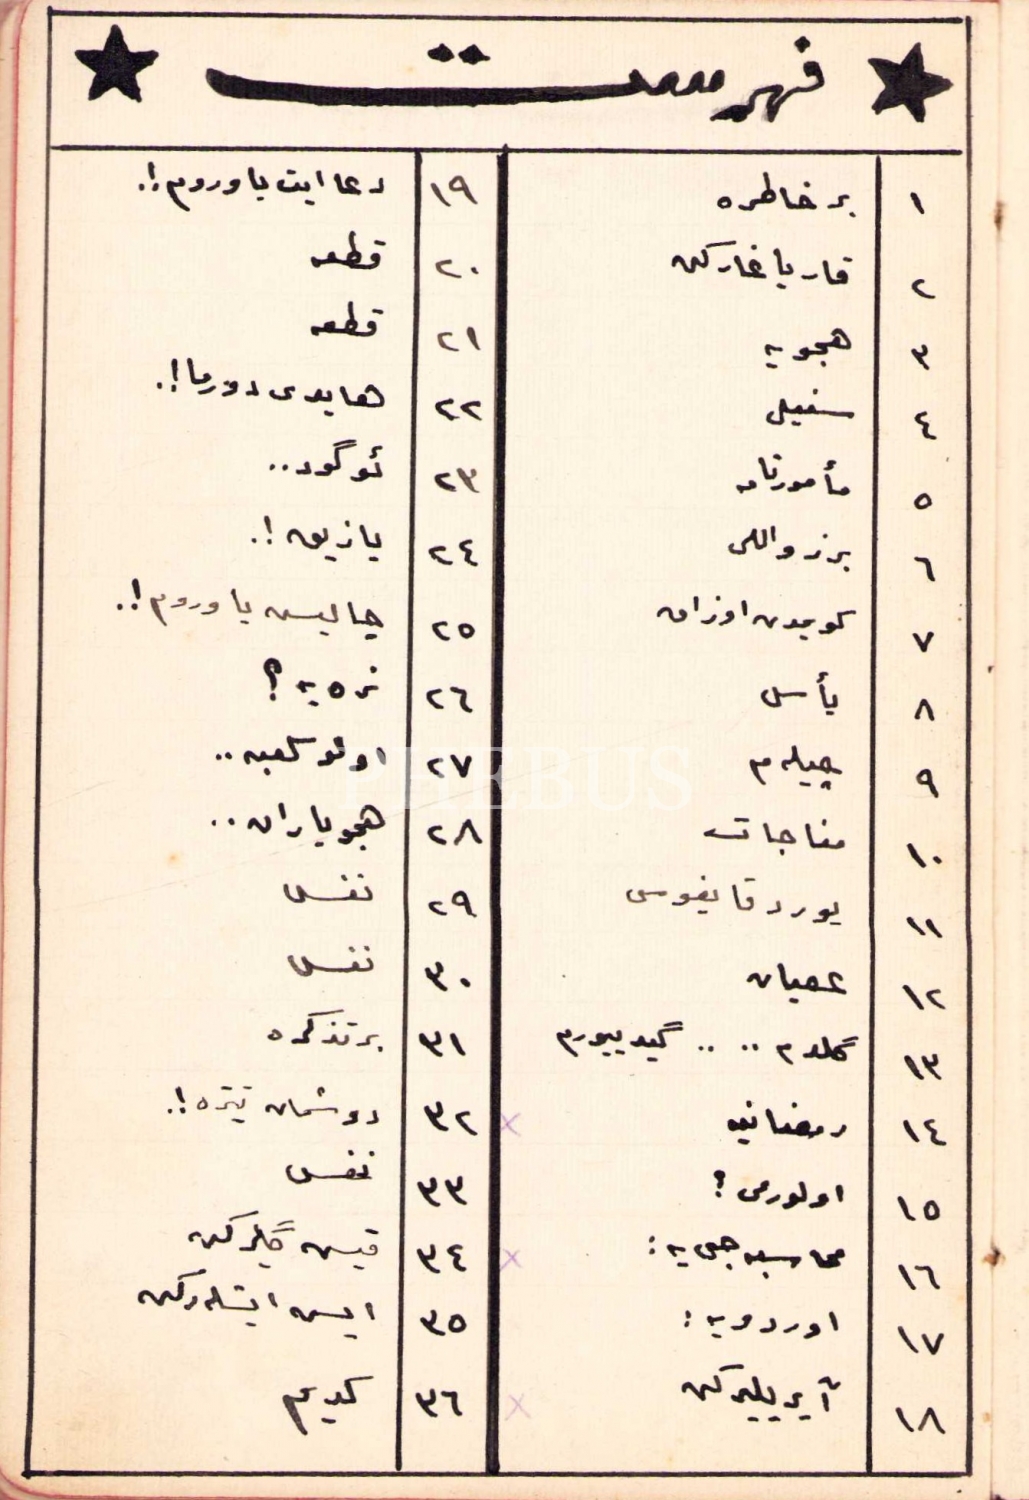 فهرست
١ بر خاطره
٢ قار ياغاركن
٣ هجويه
٤ سفيلى
٥ مأمورنامه
٦ بر زواللى
٧ كويمدن اوزاق
٨ يأس
٩ چيله م
١٠ مناجات
١١ يورد قايغوسى
١٢ عصيان
١٣ گلدم .. .. گيدييورم
١٤ رمضانيه
١٥ اولورمى ؟
١٦ محاسبه جى يه :
١٧ اوردويه :
١٨ آيريليركن
١٩ دعا ايت ياوروم !.
٢٠ قطعه
٢١ قطعه
٢٢ هايدى دورما !.
٢٣ ئوگود ..
٢٤ يازيق !.
٢٥ چاليش ياوروم !.
٢٦ نره يه ؟
٢٧ اولو كعبه ..
٢٨ هجو ياران ..
٢٩ نفس
٣٠ نفس
٣١ بر تذكره
٣٢ دوشمان تيتره !.
٣٣ نفس
٣٤ قيش گليركن
٣٥ ايش ايشلەركن
٣٦ كديم
PHEBUS